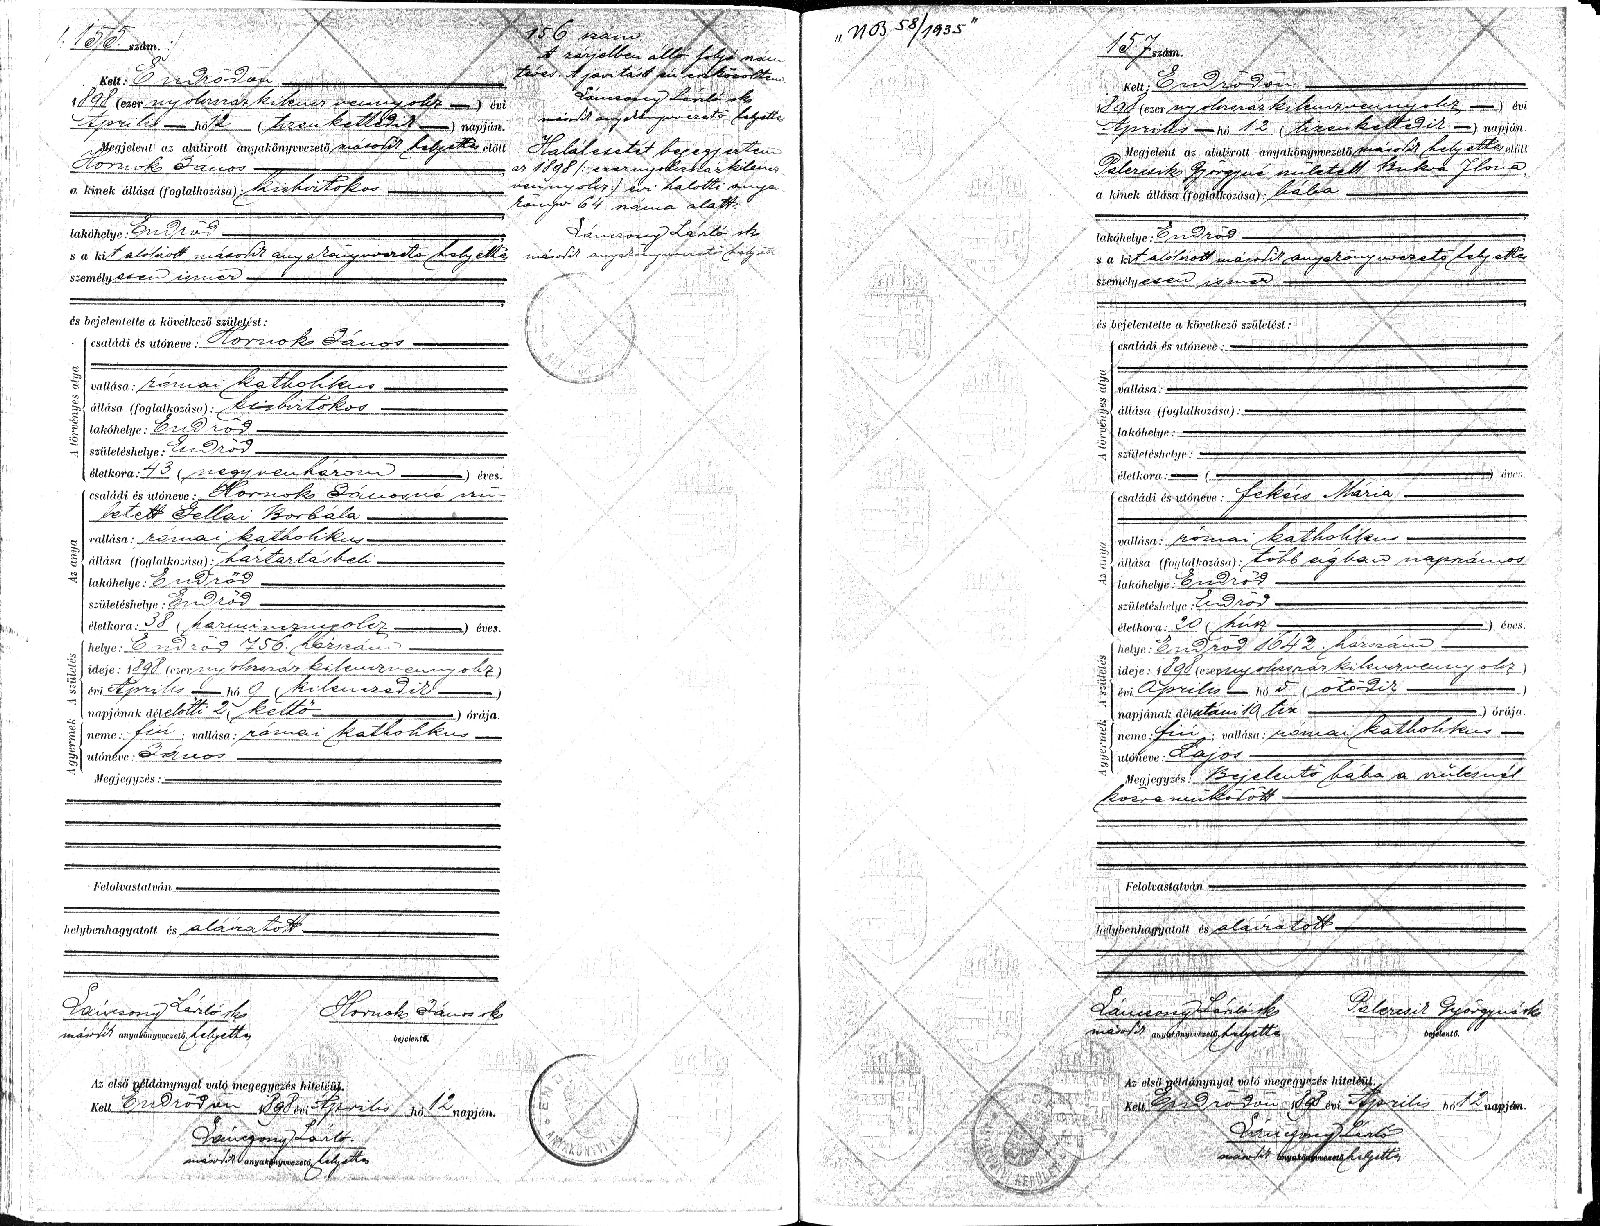 155 szám.
Kelt: Endrődön
1898 (ezer nyolcszázkilenczvennyolcz) évi
Április hó 12 (tizenkettedik) napján.
Megjelent az alulirott anyakönyvvezető második helyettes előtt
Hornok János
a kinek állása (foglalkozása): kisbirtokos
lakóhelye: Endrőd
s a kit alólirott második anyakönyvvezető helyettes
személyesen ismer
és bejelentette a következő születést:
A törvényes atya
családi és utóneve: Hornok János
vallása: római katholikus
állása (foglalkozása): kisbirtokos
lakóhelye: Endrőd
születéshelye: Endrőd
életkora: 43 (negyvenhárom) éves.
Az anya
családi és utóneve: Hornok Jánosné szü-
letett Gellai Borbála
vallása: római katholikus
állása (foglalkozása): háztartásbeli
lakóhelye: Endrőd
születéshelye: Endrőd
életkora: 38 (harmincznyolcz) éves.
A születés
helye: Endrőd 756 házszám
ideje: 1898 (ezer nyolcszáz kilenczvennyolcz)
évi Április hó 9 (kilenczedik)
napjának délelőtti 2 (kettő) órája.
A gyermek
neme: fiú; vallása: római katholikus
utóneve: János
Megjegyzés:
Felolvastatván
helybenhagyatott és aláiratott
Láncsony László sk
második anyakönyvvezető helyettes
Hornok János sk
bejelentő.
Az első példánynyal való megegyezés hiteléül.
Kelt Endrődön 1898 évi Április hó 12 napján.
Láncsony László
második anyakönyvvezető helyettes
156 szám
A zárjelben álló folyó szám
téves. A javitást én eszközöltem
Láncsony László sk
második anyakönyvvezető helyettes
Halálesetét bejegyeztem
az 1898 /: ezernyolcszázkilencz
vennyolcz :/ évi halotti anya
könyv 64 száma alatt.
Láncsony László sk
második anyakönyvvezető helyettes
„NB 58/1935”
157 szám.
Kelt: Endrődön
1898 (ezer nyolcszázkilenczvennyolcz) évi
Április hó 12 (tizenkettedik) napján.
Megjelent az alulirott anyakönyvvezető második helyettes előtt
Palercsik Györgyné született Buka Ilona
a kinek állása (foglalkozása): bába
lakóhelye: Endrőd
s a kit alólirott második anyakönyvvezető helyettes
személyesen ismer
és bejelentette a következő születést:
A törvényes atya
családi és utóneve:
vallása:
állása (foglalkozása):
lakóhelye:
születéshelye:
életkora: ( ) éves.
Az anya
családi és utóneve: Fekécs Mária
vallása: római katholikus
állása (foglalkozása): több ágban napszámos
lakóhelye: Endrőd
születéshelye: Endrőd
életkora: 20 (húsz) éves.
A születés
helye: Endrőd 1642 házszám
ideje: 1898 (ezernyolcszázkilenczvennyolcz)
évi Április hó 5 (ötödik)
napjának délutáni 10 (tiz) órája.
A gyermek
neme: fiú; vallása: római katholikus
utóneve: Lajos
Megjegyzés: Bejelentő bába a szülésnél
közreműködött
Felolvastatván
helybenhagyatott és aláiratott
Láncsony László sk
második anyakönyvvezető helyettes
Palercsik Györgyné sk
bejelentő.
Az első példánynyal való megegyezés hiteléül.
Kelt Endrődön 1898 évi Április hó 12 napján.
Láncsony László
második anyakönyvvezető helyettes